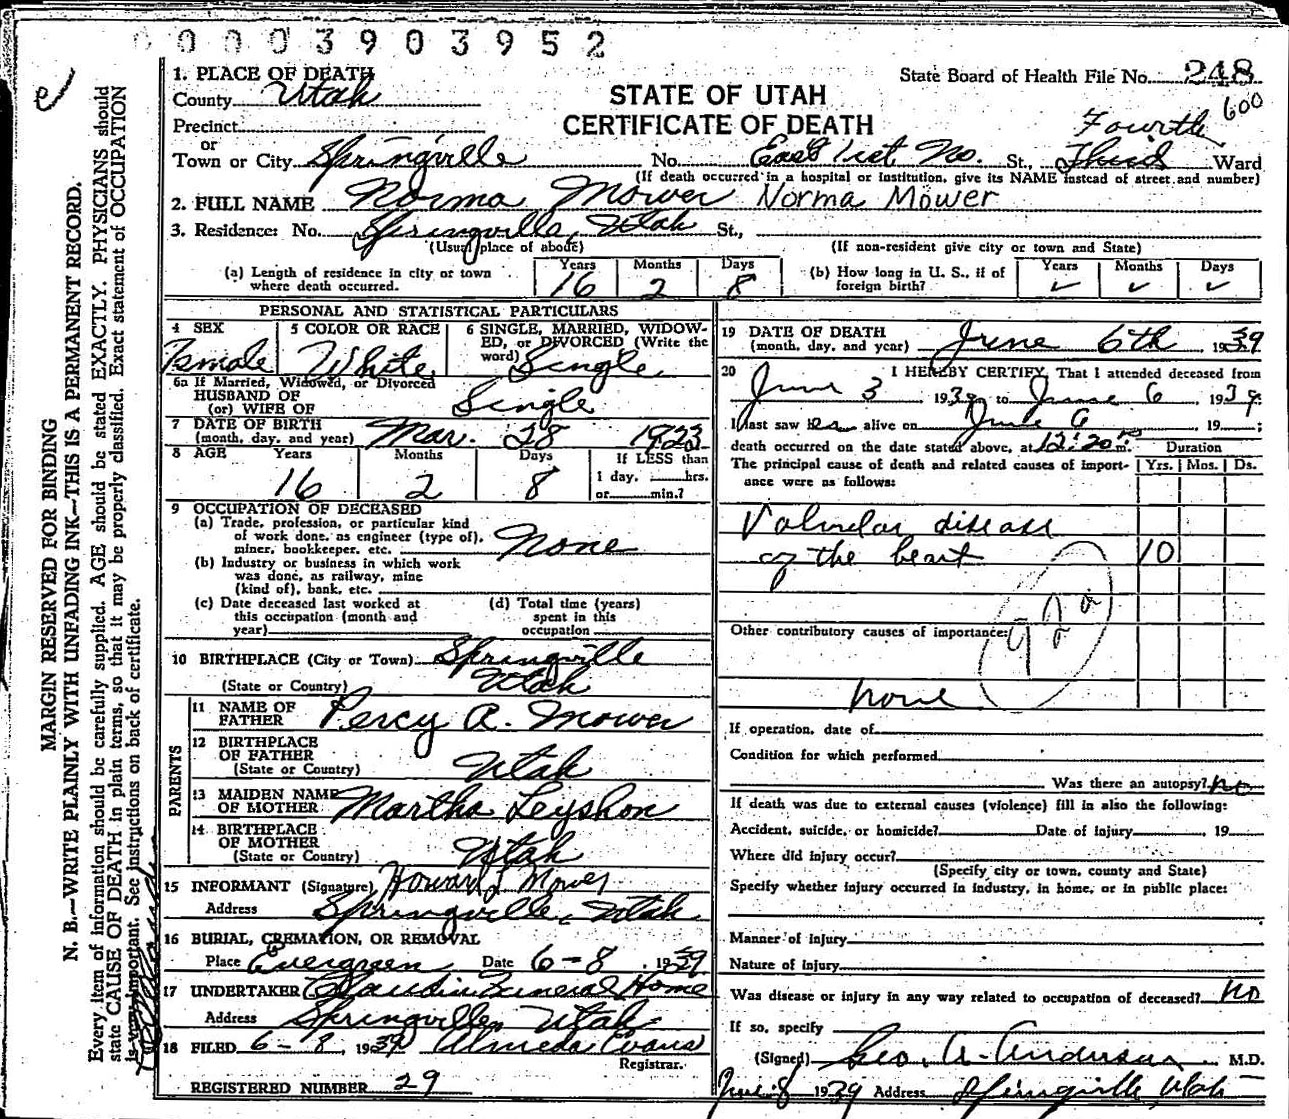 00003903952
1. PLACE OF DEATH
State Board of Health File No. 248
600
County Utah
STATE OF UTAH
CERTIFICATE OF DEATH
Precinct
or
Fourth
Town or City Springville No. East 1st No. St., Third Ward
(If death occurred in a hospital or institution, give its NAME instead of street and number)
2. FULL NAME Norma Mower Norma Mower
3. Residence: No. Springville, Utah St.,
(Usual place of abode) (If non-resident give city or town and State)
(a) Length of residence in city or town where death occurred. Years 16 Months 2 Days 8
(b) How long in U. S., if of foreign birth? Years ✓ Months ✓ Days ✓
PERSONAL AND STATISTICAL PARTICULARS
4 SEX Female
5 COLOR OR RACE White
6 SINGLE, MARRIED, WIDOWED, or DIVORCED (Write the word) Single
6a If Married, Widowed, or Divorced
HUSBAND OF
(or) WIFE OF Single
7 DATE OF BIRTH
(month, day, and year) Mar. 28 1923
8 AGE Years 16 Months 2 Days 8 If LESS than
1 day, hrs.
or min.?
9 OCCUPATION OF DECEASED
(a) Trade, profession, or particular kind
of work done, as engineer (type of),
miner, bookkeeper, etc. None
(b) Industry or business in which work
was done, as railway, mine
(kind of), bank, etc.
(c) Date deceased last worked at
this occupation (month and
year)
(d) Total time (years)
spent in this
occupation
10 BIRTHPLACE (City or Town) Springville
(State or Country) Utah
PARENTS
11 NAME OF
FATHER Percy A. Mower
12 BIRTHPLACE
OF FATHER
(State or Country) Utah
13 MAIDEN NAME
OF MOTHER Martha Leyshon
14 BIRTHPLACE
OF MOTHER
(State or Country) Utah
15 INFORMANT (Signature) Howard L Mower
Address Springville, Utah
16 BURIAL, CREMATION, OR REMOVAL
Place Evergreen Date 6-8, 1939
17 UNDERTAKER Claudin Funeral Home
Address Springville, Utah
18 FILED 6-8, 1939 Almeda Evans
Registrar.
REGISTERED NUMBER 29
19 DATE OF DEATH
(month, day, and year) June 6th, 1939
20 I HEREBY CERTIFY, That I attended deceased from
June 3, 1939, to June 6, 1939.
I last saw her alive on June 6, 19 ;
death occurred on the date stated above, at 12:20 P.m.
Duration
Yrs. Mos. Ds.
The principal cause of death and related causes of importance were as follows:
Valvular disease
of the heart 10
92a
Other contributory causes of importance:
none
If operation, date of
Condition for which performed
Was there an autopsy? no
If death was due to external causes (violence) fill in also the following:
Accident, suicide, or homicide? Date of injury , 19
Where did injury occur?
(Specify city or town, county and State)
Specify whether injury occurred in industry, in home, or in public place:
Manner of injury
Nature of injury
Was disease or injury in any way related to occupation of deceased? no
If so, specify
(Signed) Geo. A. Anderson M.D.
June 8 1939 Address Springville, Utah
MARGIN RESERVED FOR BINDING
N. B.—WRITE PLAINLY WITH UNFADING INK—THIS IS A PERMANENT RECORD.
Every item of information should be carefully supplied. AGE should be stated EXACTLY. PHYSICIANS should
state CAUSE OF DEATH in plain terms, so that it may be properly classified. Exact statement of OCCUPATION
is very important. See instructions on back of certificate.